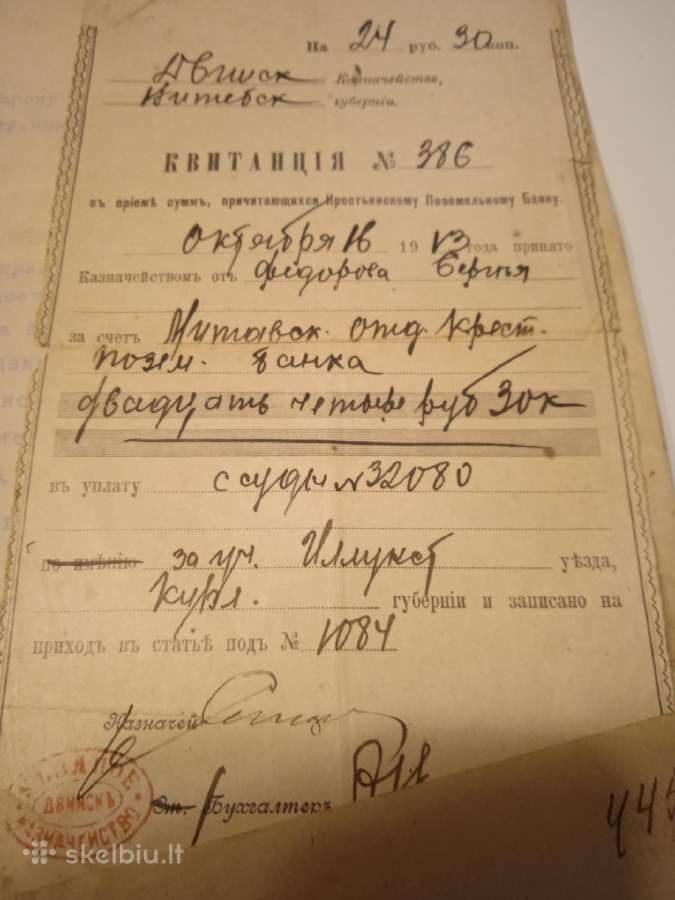 На 24 руб. 30 коп.
Двинск Казначейство,
Витебск губернiи.
КВИТАНЦIЯ № 386
въ прiемѣ суммъ, причитающихся Крестьянскому Поземельному Банку.
Октября 16 1913 года принято
Казначействомъ отъ Федорова Сергѣя
за счетъ Митавск. отд. Крест.
позем. банка
двадцать четыре руб 30 к
въ уплату ссуды № 32080
по имѣнiю за уч. Иллукст уѣзда,
Курл. губернiи и записано на
приходъ въ статьѣ подъ № 1084
Казначей
ДВИНСКЪ
КАЗНАЧЕЙСТВО
Ст. Бухгалтеръ
skelbiu.lt